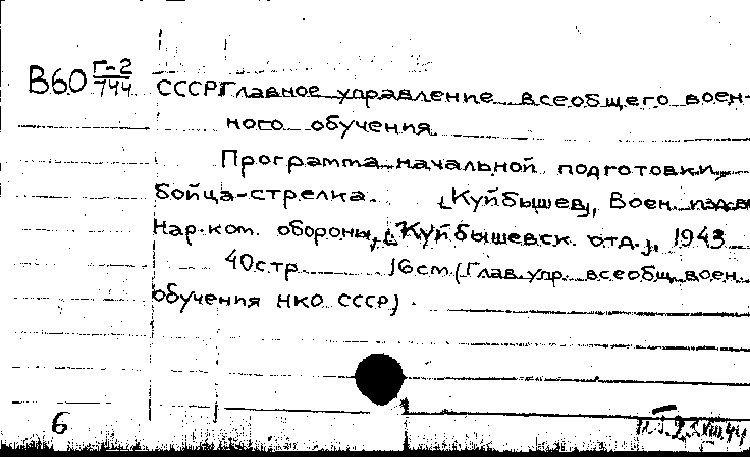 В60 Г-2/744 СССР Главное управление всеобщего воен-
ного обучения.
Программа начальной подготовки
бойца-стрелка. [Куйбышев], Воен. изд-во
Нар. ком. обороны, [Куйбышевск. отд.], 1943
40 стр 16 cm (Глав. упр. всеобщ. воен.
обучения НКО СССР).
6